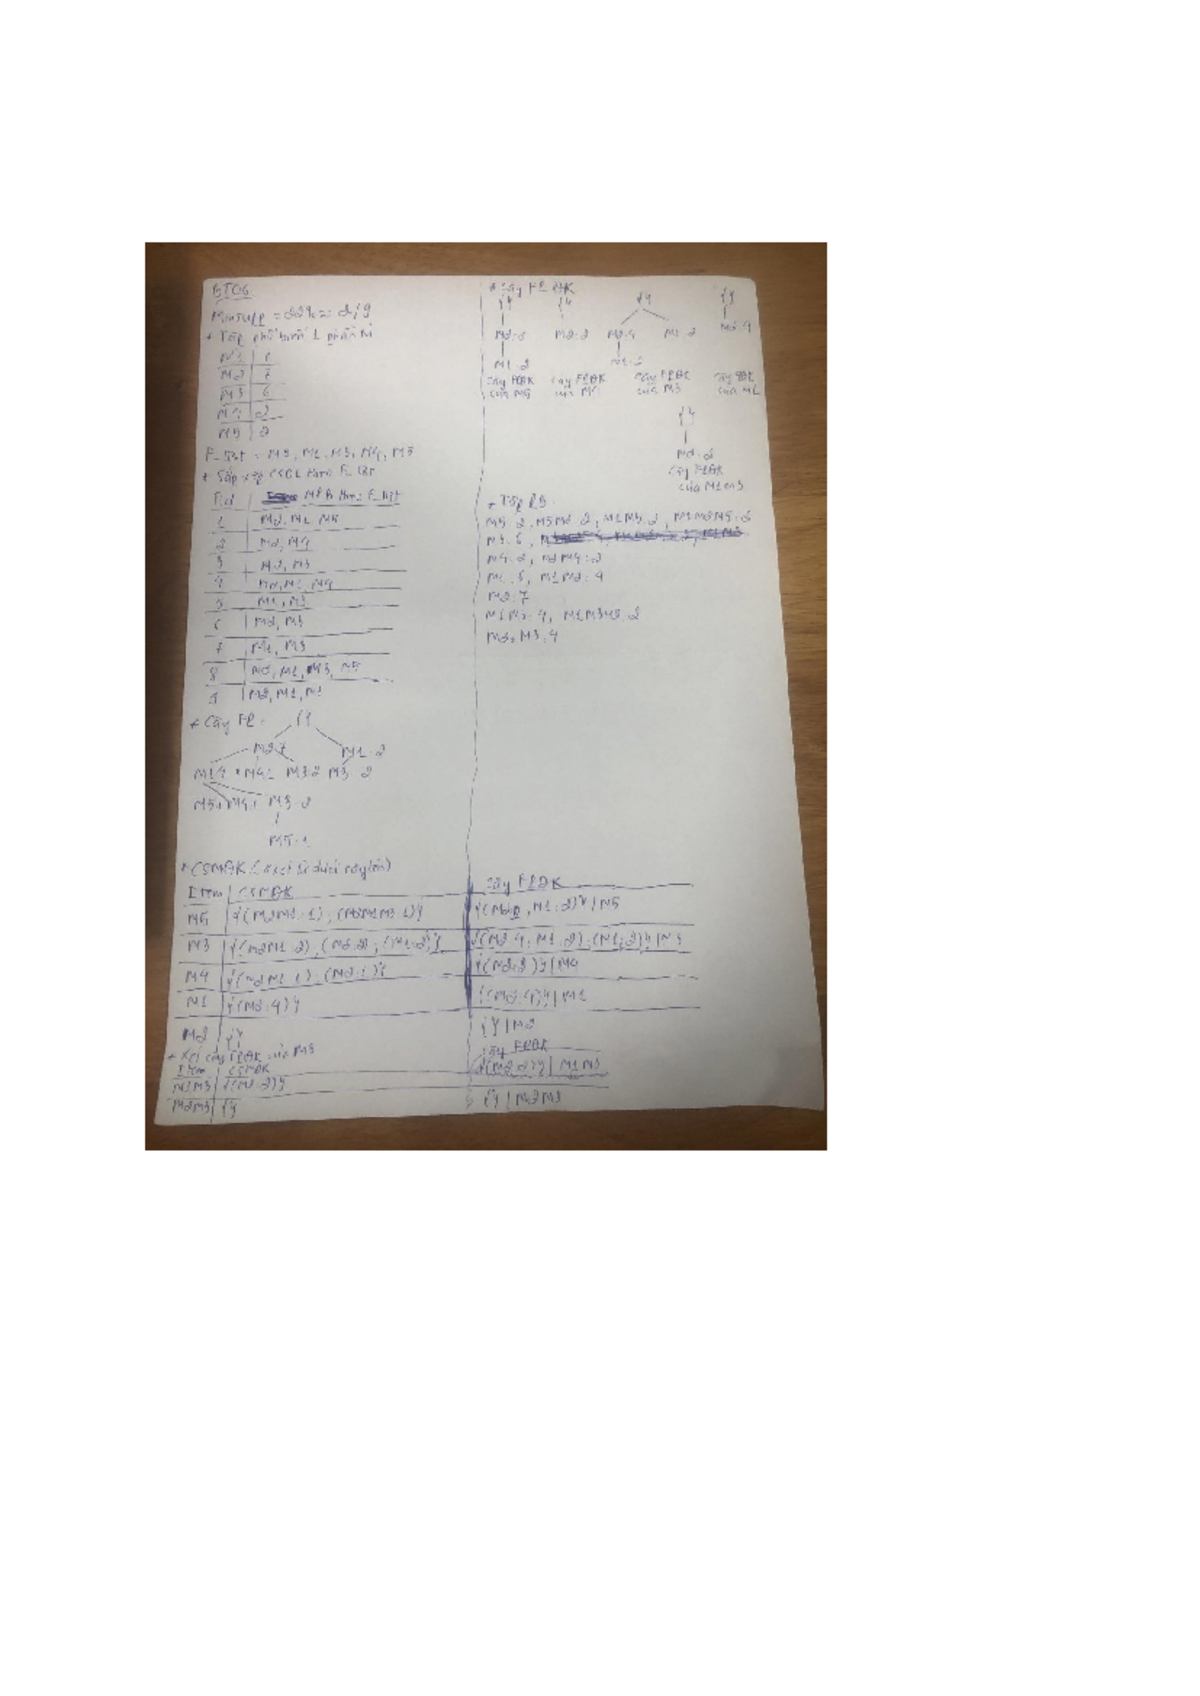 BT06
Minsupp = 22% = 2/9
+ Tập phổ biến 1 phần tử
M2 7
M3 6
M4 2
M5 2
* Sắp xếp CSDL theo F_list
MPB theo F_list
1 M2, M1, M5
2 M2, M4
3 M2, M3
4 M2, M1, M4
5 M1, M3
6 M2, M3
7 M1, M3
8 M2, M1, M3, M5
9 M2, M1,
* Cây FP:
{}
M2:7
M1:2
M1:4 M4:1 M3:2 M3:2
M5:1 M4:1 M3:2
M5:1
Item CSMĐK
M5 {(M2M1:1), (M2M1M3:1)}
M3 {(M2M1:2), (M2:2), (M1:2)}
M4 {(M2M1:1), (M2:1)}
M1 {(M2:4)}
M2 {}
+ Xét cây FPĐK của M3
Item CSMĐK
M1M3 {(M2:2)}
M2M3 {}
* Cây FPĐK
{} {} {} {}
M2:2 M2:2 M2:4 M1:2 M2:4
M1:2 M1:2
Cây FPĐK Cây FPĐK Cây FPĐK Cây FPĐK
của M5 của M4 của M3 của M1
{}
M2:2
Cây FPĐK
của M1M3
+ Tập PB:
M5:2, M5M2:2, M1M5:2, M1M2M5:2
M3:6,
M4:2, M2M4:2
M1M2:4
M2:7
M1M3:4, M1M3M2:2
M2M3:4
Cây FPĐK
M1:2)} | M5
{(M2:4, M1:2), (M1:2)} | M3
{(M2:2)} | M4
{(M2:4)} | M1
{} | M2
Cây FPĐK
{(M2:2)} | M1M3
{} | M2M3